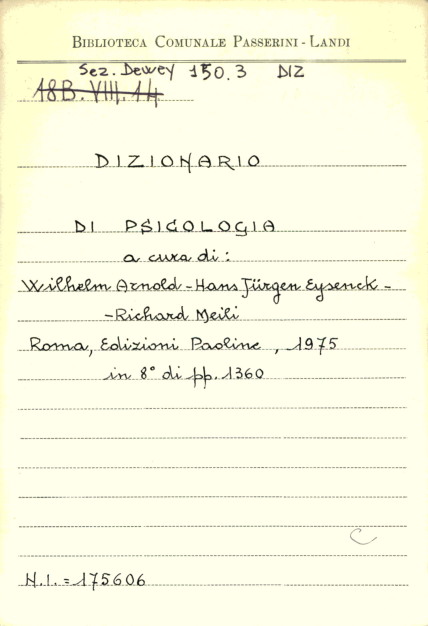 BIBLIOTECA COMUNALE PASSERINI - LANDI
Sez. Dewey 150.3 DIZ
18B.VIII.14
DIZIONARIO
DI PSICOLOGIA
a cura di:
Wilhelm Arnold - Hans Jürgen Eysenck -
- Richard Meili
Roma, Edizioni Paoline, 1975
in 8° di pp. 1360
C
N.I. = 175606